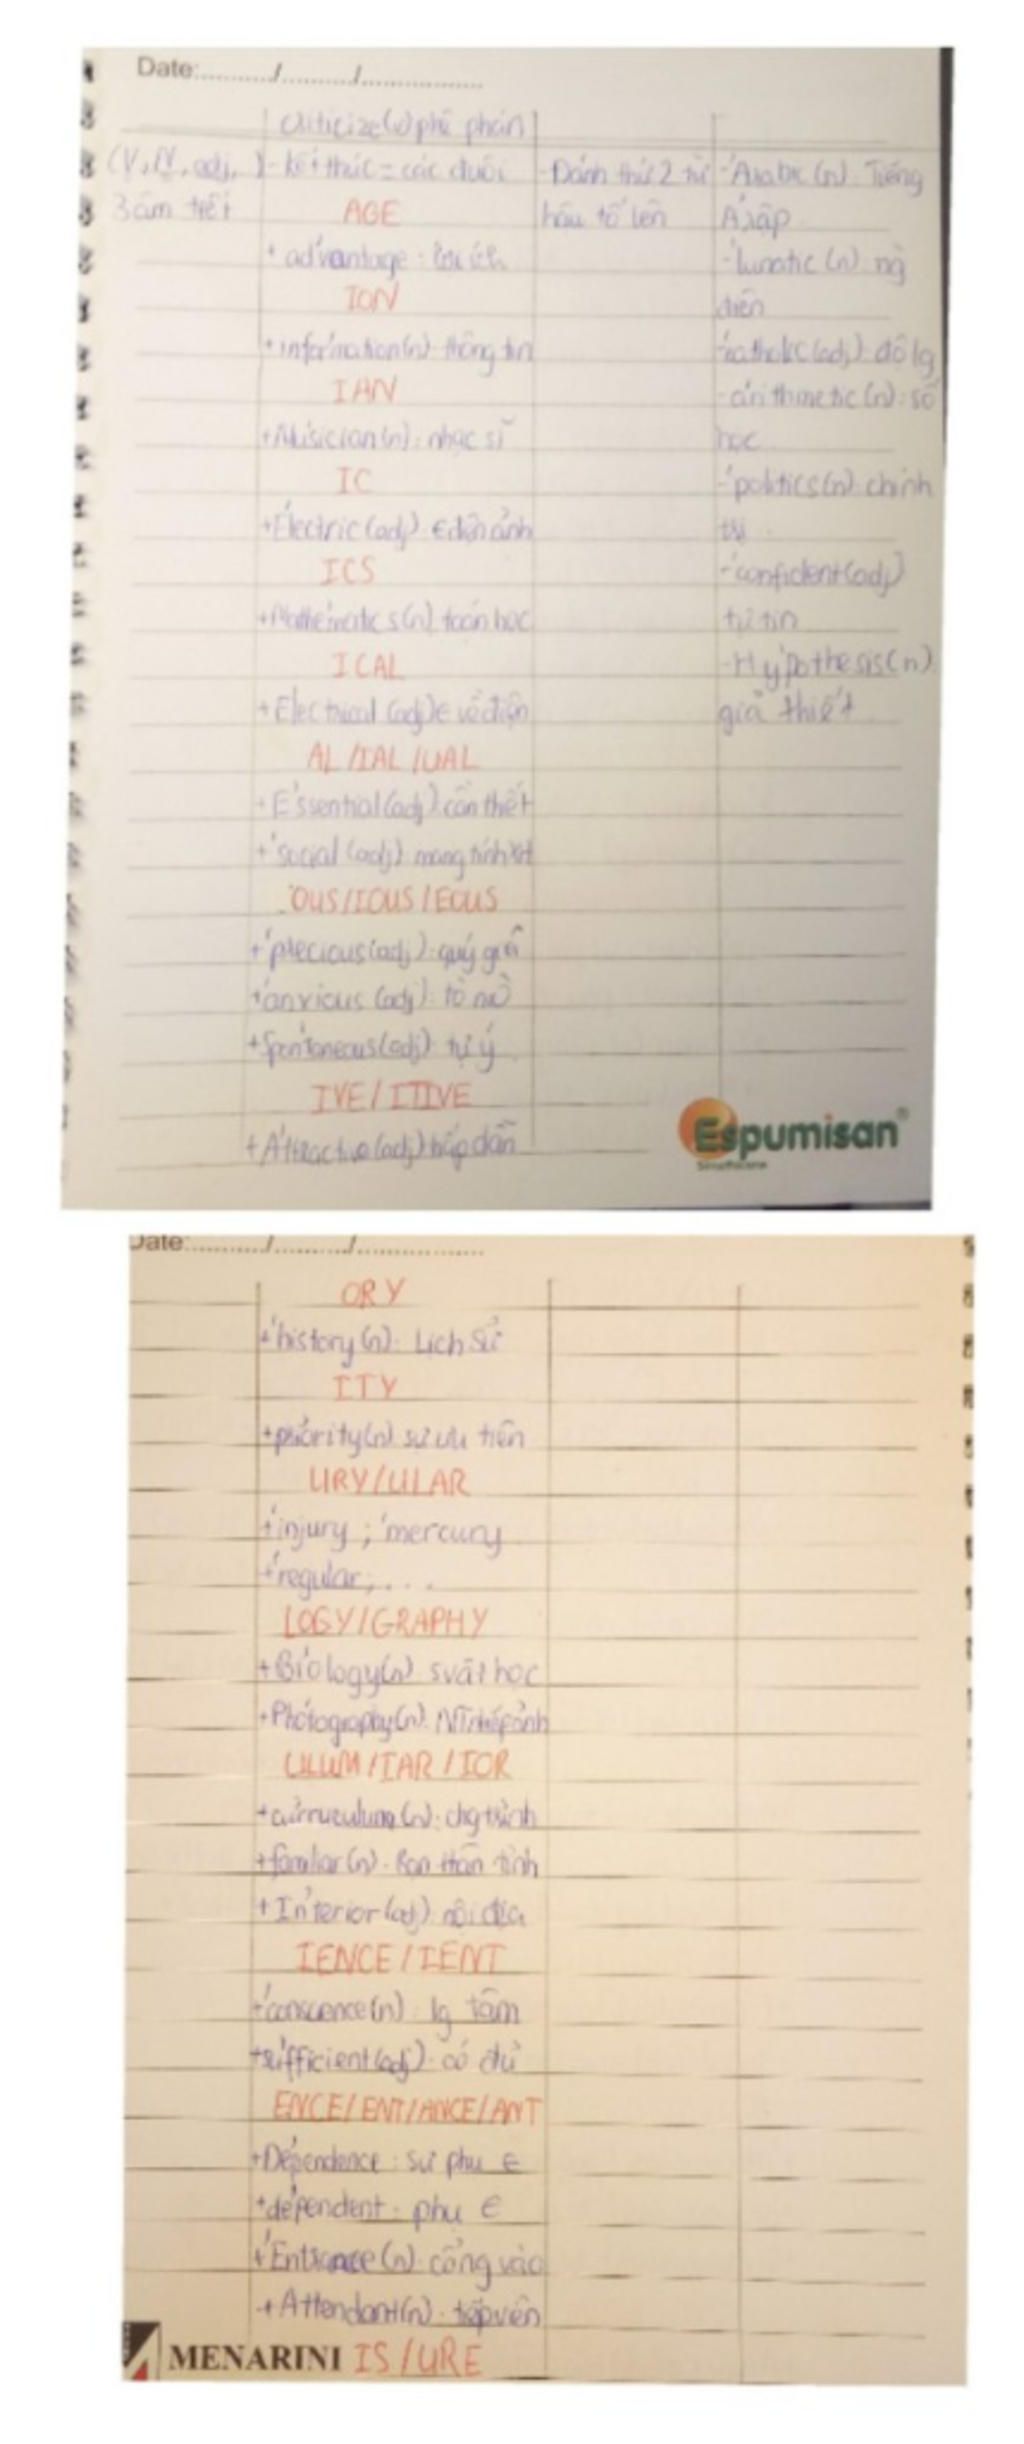 Date:........../........../................
criticize(v) phê phán
(V, N, adj, ) - kết thúc = các đuôi - Đánh thứ 2 từ - 'Arabic (n): Tiếng
3 âm tiết AGE hậu tố lên Ả rập
+ ad'vantage: lợi ích - 'lunatic (n) ng
ION điên
+ infor'mation(n): thông tin - 'catholic(adj) độ lg
IAN - a'rithmetic (n): số
+ Musician(n): nhạc sĩ học
IC - 'politics(n) chính
+ Electric (adj) ∈ điện ảnh trị
ICS - 'confident(adj)
+ Mathematics(n) toán học tự tin
ICAL - Hy'pothesis(n)
+ Electrical (adj) ∈ về điện giả thiết
AL / IAL / UAL
+ E'ssential(adj) cần thiết
+ 'social (adj) mang tính XH
OUS/IOUS/EOUS
+ 'precious(adj) quý giá
+ 'anxious (adj) tò mò
+ Spon'taneous(adj) tự ý
IVE / ITIVE
+ A'ttractive(adj) hấp dẫn
Espumisan®
Simethicone
Date:........../........../................
ORY
+ 'history (n): Lịch Sử
ITY
+ priority(n) sự ưu tiên
URY/ULAR
+ 'injury ; 'mercury
+ 'regular; ...
LOGY/GRAPHY
+ Biology(n) svật học
+ Photography(n). NT nhiếp ảnh
ULUM / IAR / IOR
+ (n): chg trình
+ familar (n). Bạn thân tình
+ In'terior (adj) nội địa
IENCE / IENT
+ (n): lg tâm
+ sufficient(adj) có đủ
ENCE/ENT/ANCE/ANT
+ De'pendence: sự phụ ∈
+ de'pendent: phụ ∈
+ 'Entrance (n) cổng vào
+ Attendant(n): tiếp viên
MENARINI IS / URE